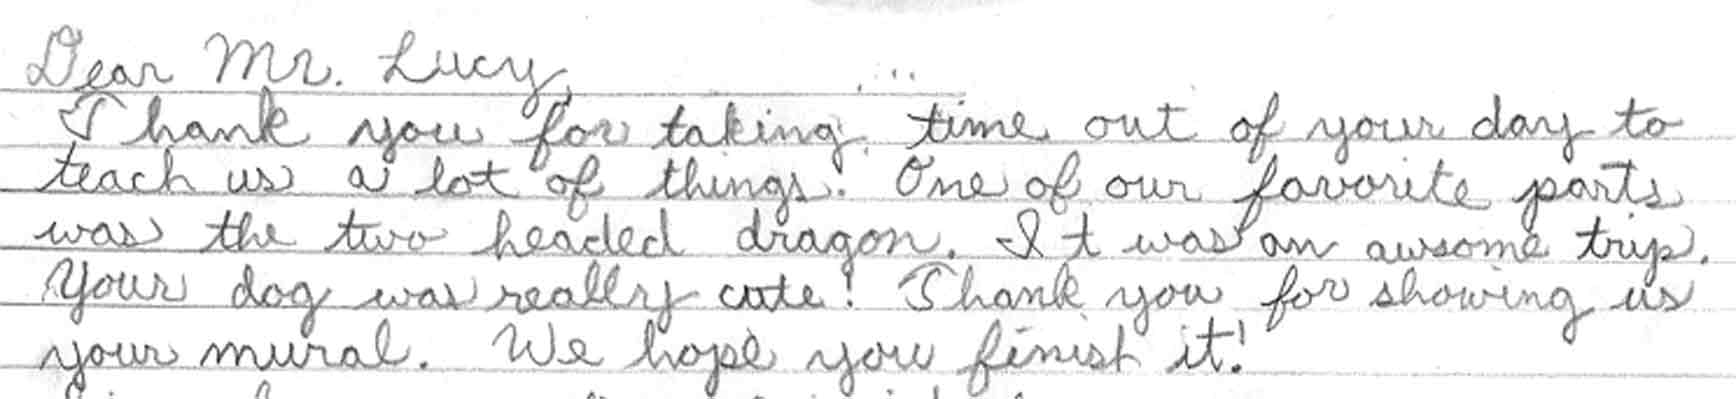 Dear Mr. Lucy,
Thank you for taking time out of your day to
teach us a lot of things. One of our favorite parts
was the two headed dragon. It was an awsome trip.
Your dog was really cute! Thank you for showing us
your mural. We hope you finish it!